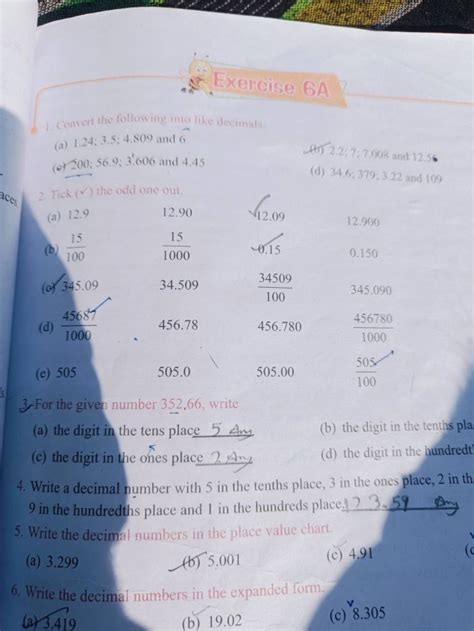 Exercise 6A
1. Convert the following into like decimals.
(a) 1.24; 3.5; 4.809 and 6
(b) 2.2; 7; 7.008 and 12.56
(c) 200; 56.9; 3.606 and 4.45
(d) 34.6; 379; 3.22 and 109
2. Tick (✓) the odd one out.
(a) 12.9 12.90 12.09 12.900
(b) 15/100 15/1000 0.15 0.150
(c) 345.09 34.509 34509/100 345.090
(d) 45687/1000 456.78 456.780 456780/1000
(e) 505 505.0 505.00 505/100
3. For the given number 352.66, write
(a) the digit in the tens place 5 Ans
(b) the digit in the tenths pla
(c) the digit in the ones place 2 Ans
(d) the digit in the hundredt
4. Write a decimal number with 5 in the tenths place, 3 in the ones place, 2 in th
9 in the hundredths place and 1 in the hundreds place. 123.59 Ans
5. Write the decimal numbers in the place value chart.
(a) 3.299 (b) 5.001 (c) 4.91
6. Write the decimal numbers in the expanded form.
(a) 3.419 (b) 19.02 (c) 8.305